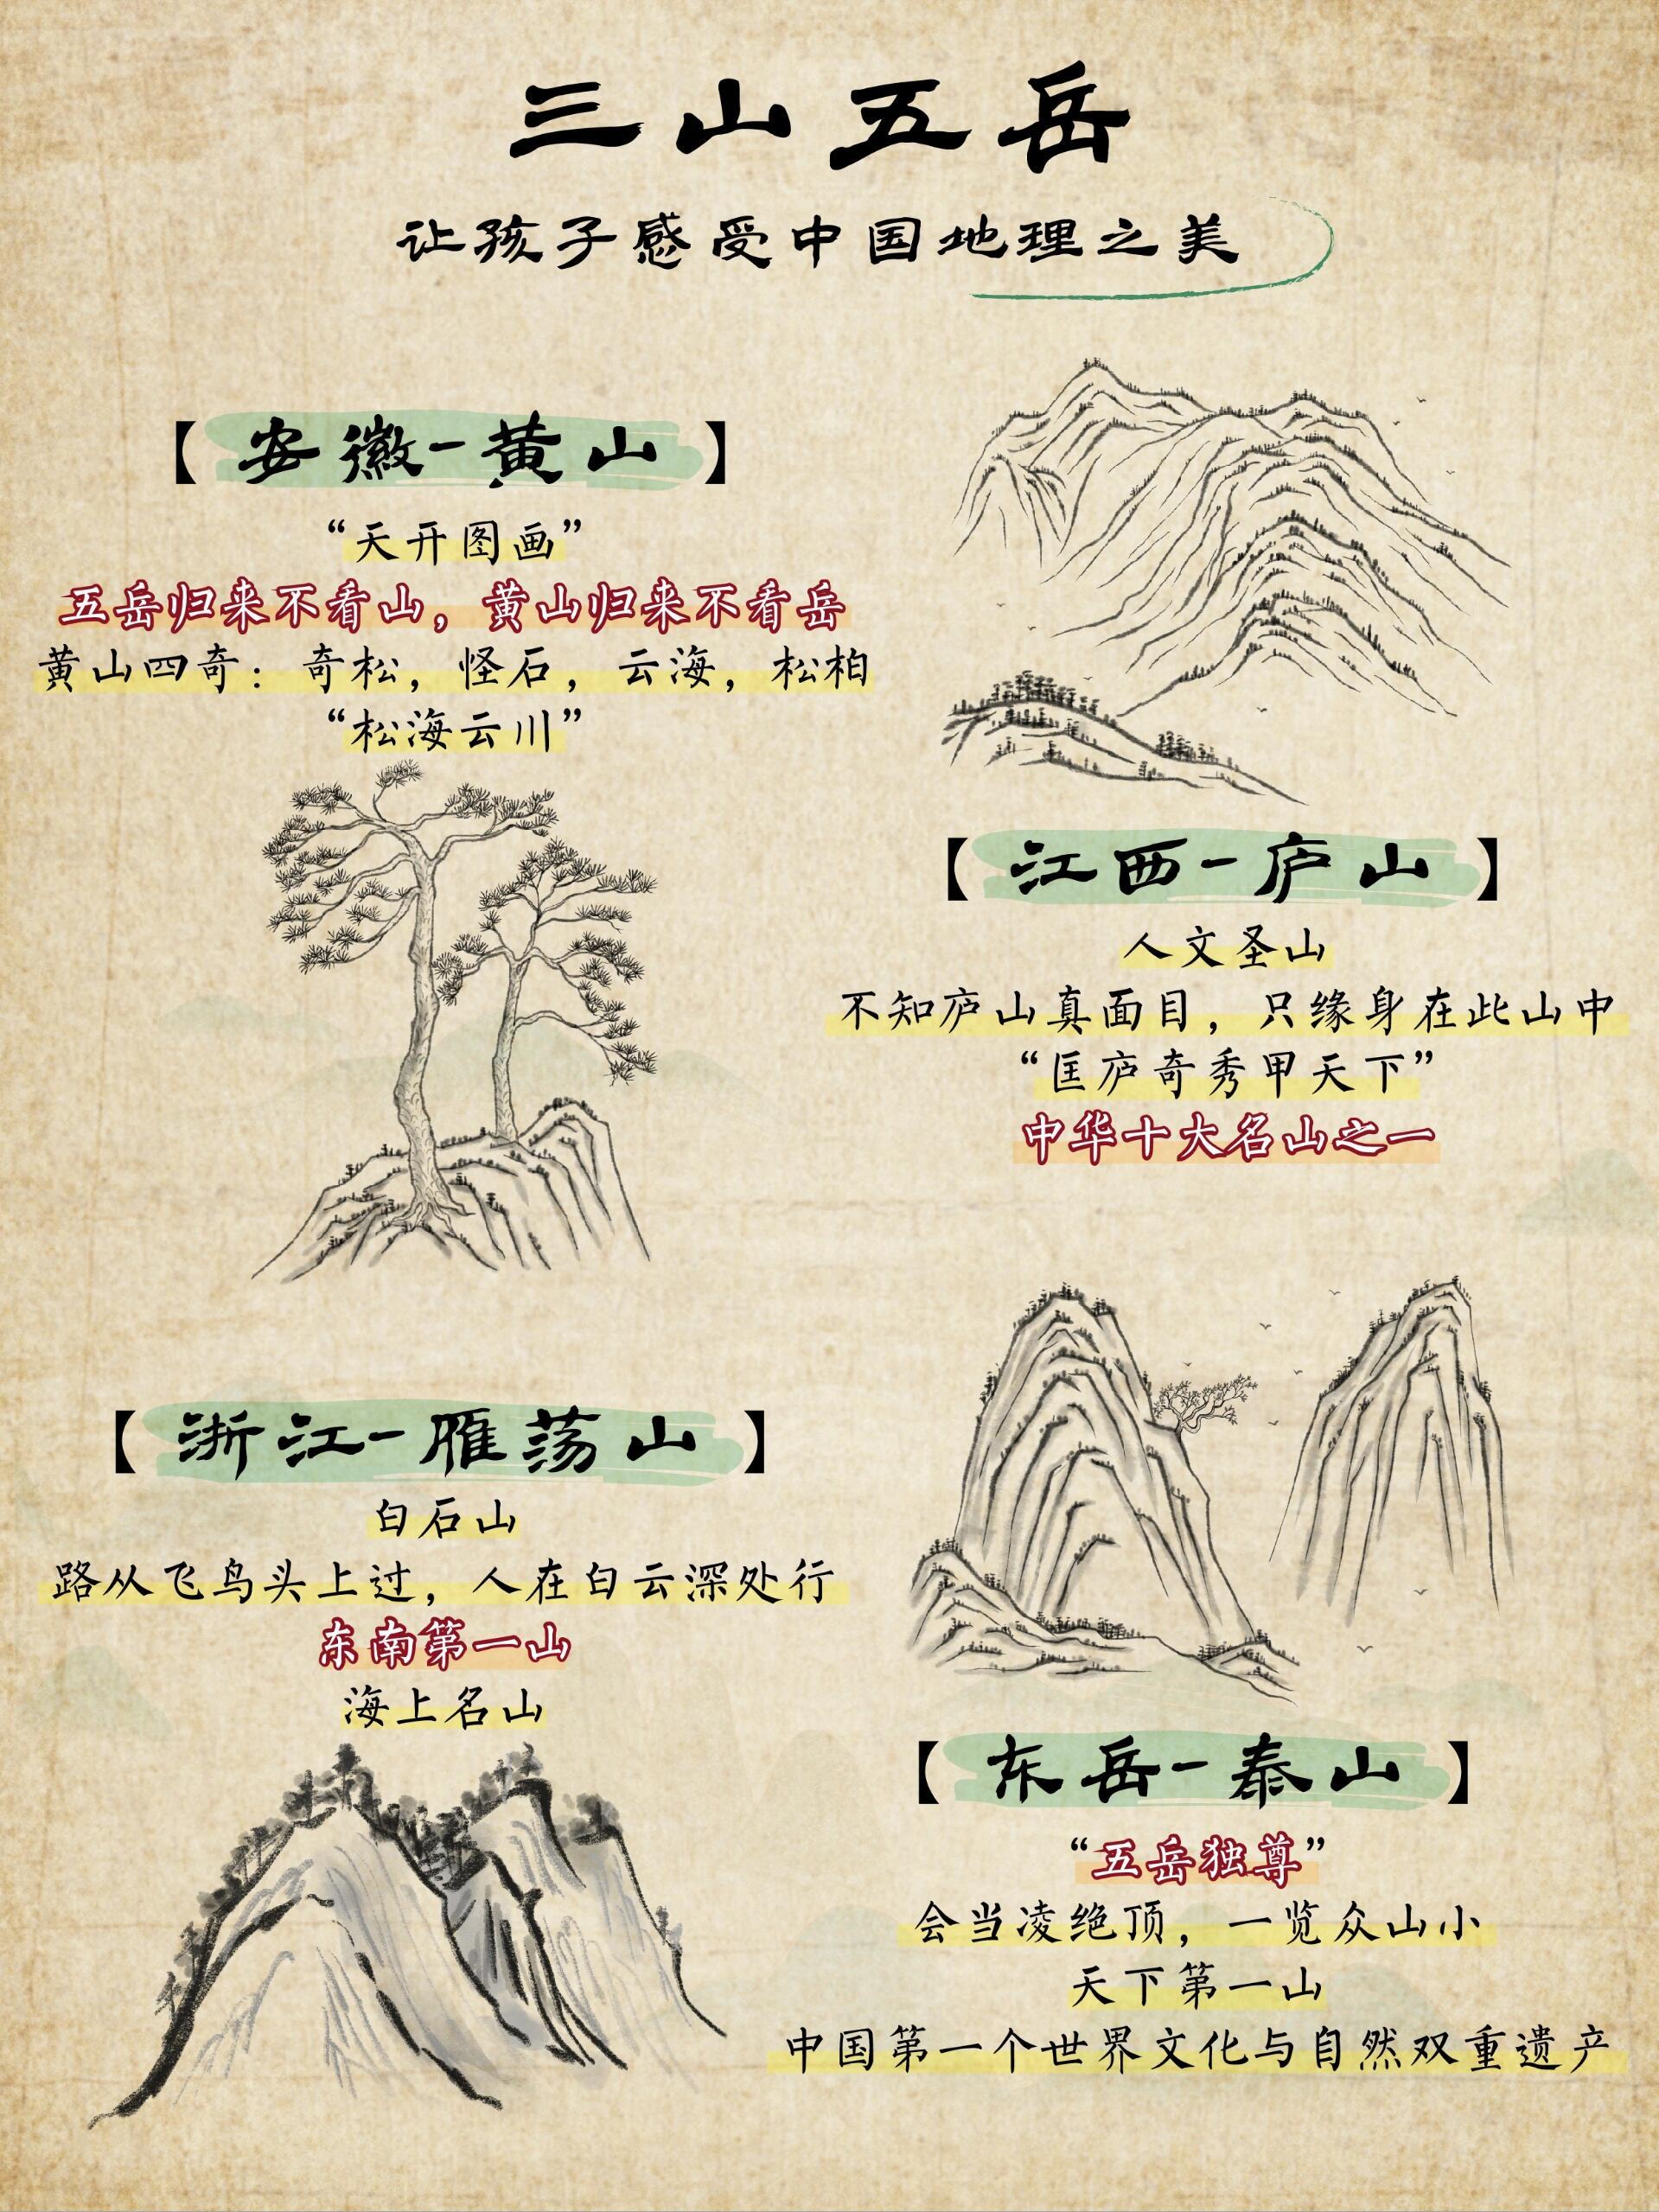 三山五岳
让孩子感受中国地理之美
【安徽-黄山】
“天开图画”
五岳归来不看山，黄山归来不看岳
黄山四奇：奇松，怪石，云海，松柏
“松海云川”
【江西-庐山】
人文圣山
不知庐山真面目，只缘身在此山中
“匡庐奇秀甲天下”
中华十大名山之一
【浙江-雁荡山】
白石山
路从飞鸟头上过，人在白云深处行
东南第一山
海上名山
【东岳-泰山】
“五岳独尊”
会当凌绝顶，一览众山小
天下第一山
中国第一个世界文化与自然双重遗产